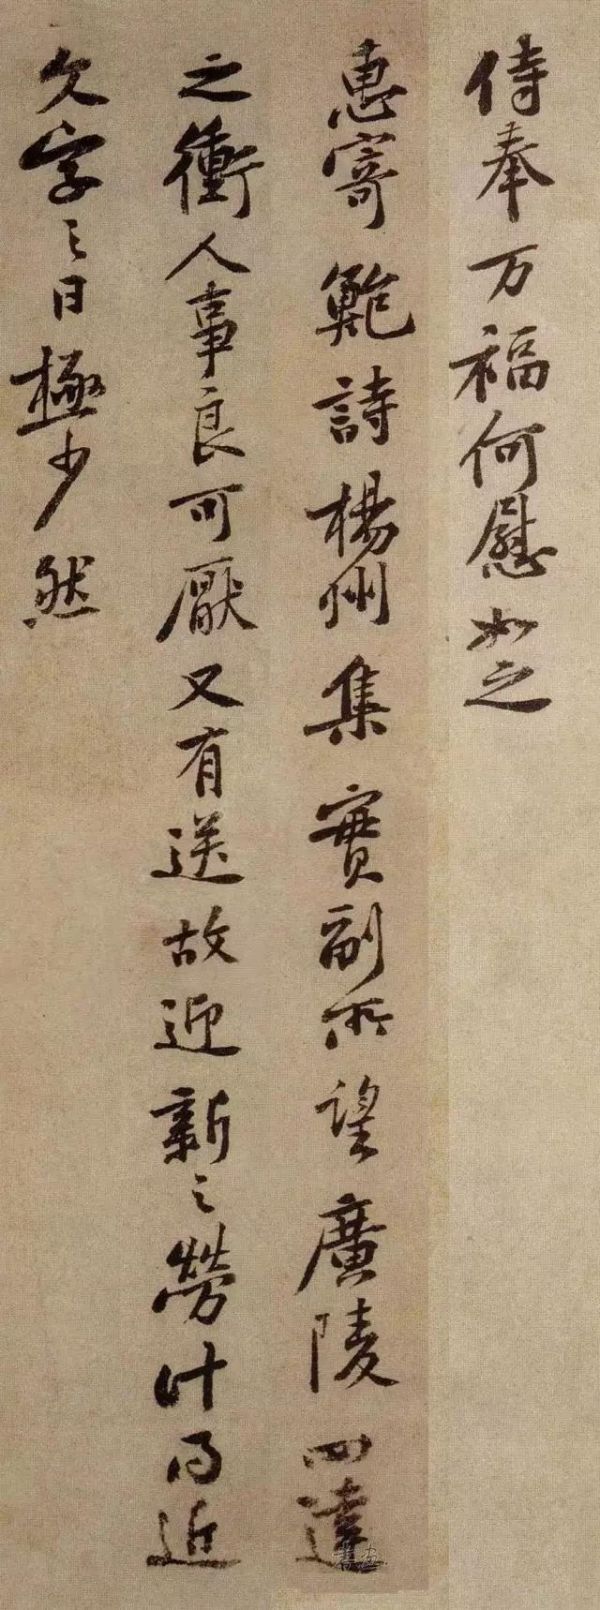 侍奉万福何慰如之
惠寄鲍詩楊州集實副所望廣陵四達
之衝人事良可厭又有送故迎新之勞計得近
文字之日極少然